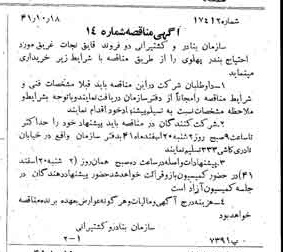 شماره ۱۷۴۱۲ ۴۱ر۱۰ر۱۸
آگهی مناقصه شماره ۱۴
سازمان بنادر و کشتیرانی دو فروند قایق نجات غریق مورد
احتیاج بندر پهلوی را از طریق مناقصه با شرایط زیر خریداری
مینماید
۱ـ داوطلبان شرکت در این مناقصه باید قبلا مشخصات فنی و
شرایط مناقصه را مجاناً از دفتر سازمان دریافت نمایند و با توجه بشرایط و
ملاحظه مشخصات نسبت به تسلیم پیشنهاد خود اقدام نمایند
۲ـ شرکت کنندگان در مناقصه باید پیشنهاد خود را حداکثر
تا ساعت ۹ صبح روز ۲ شنبه ۲۰ اسفند ماه ۴۱ بدفتر سازمان واقع در خیابان
نادری کاشی ۳۳۳ تسلیم نمایند
۳ـ پیشنهادات واصله در ساعت ده صبح همان روز (۲ شنبه ۲۰ اسفند
۴۱) در حضور کمیسیون باز و قرائت خواهد شد حضور پیشنهاد دهندگان در
جلسه کمیسیون آزاد است
۴ـ هزینه درج آگهی و مالیات و هرگونه عوارض بعهده برنده مناقصه
خواهد بود
سازمان بنادر و کشتیرانی
۷۳۹۱ پ ۲ـ۱